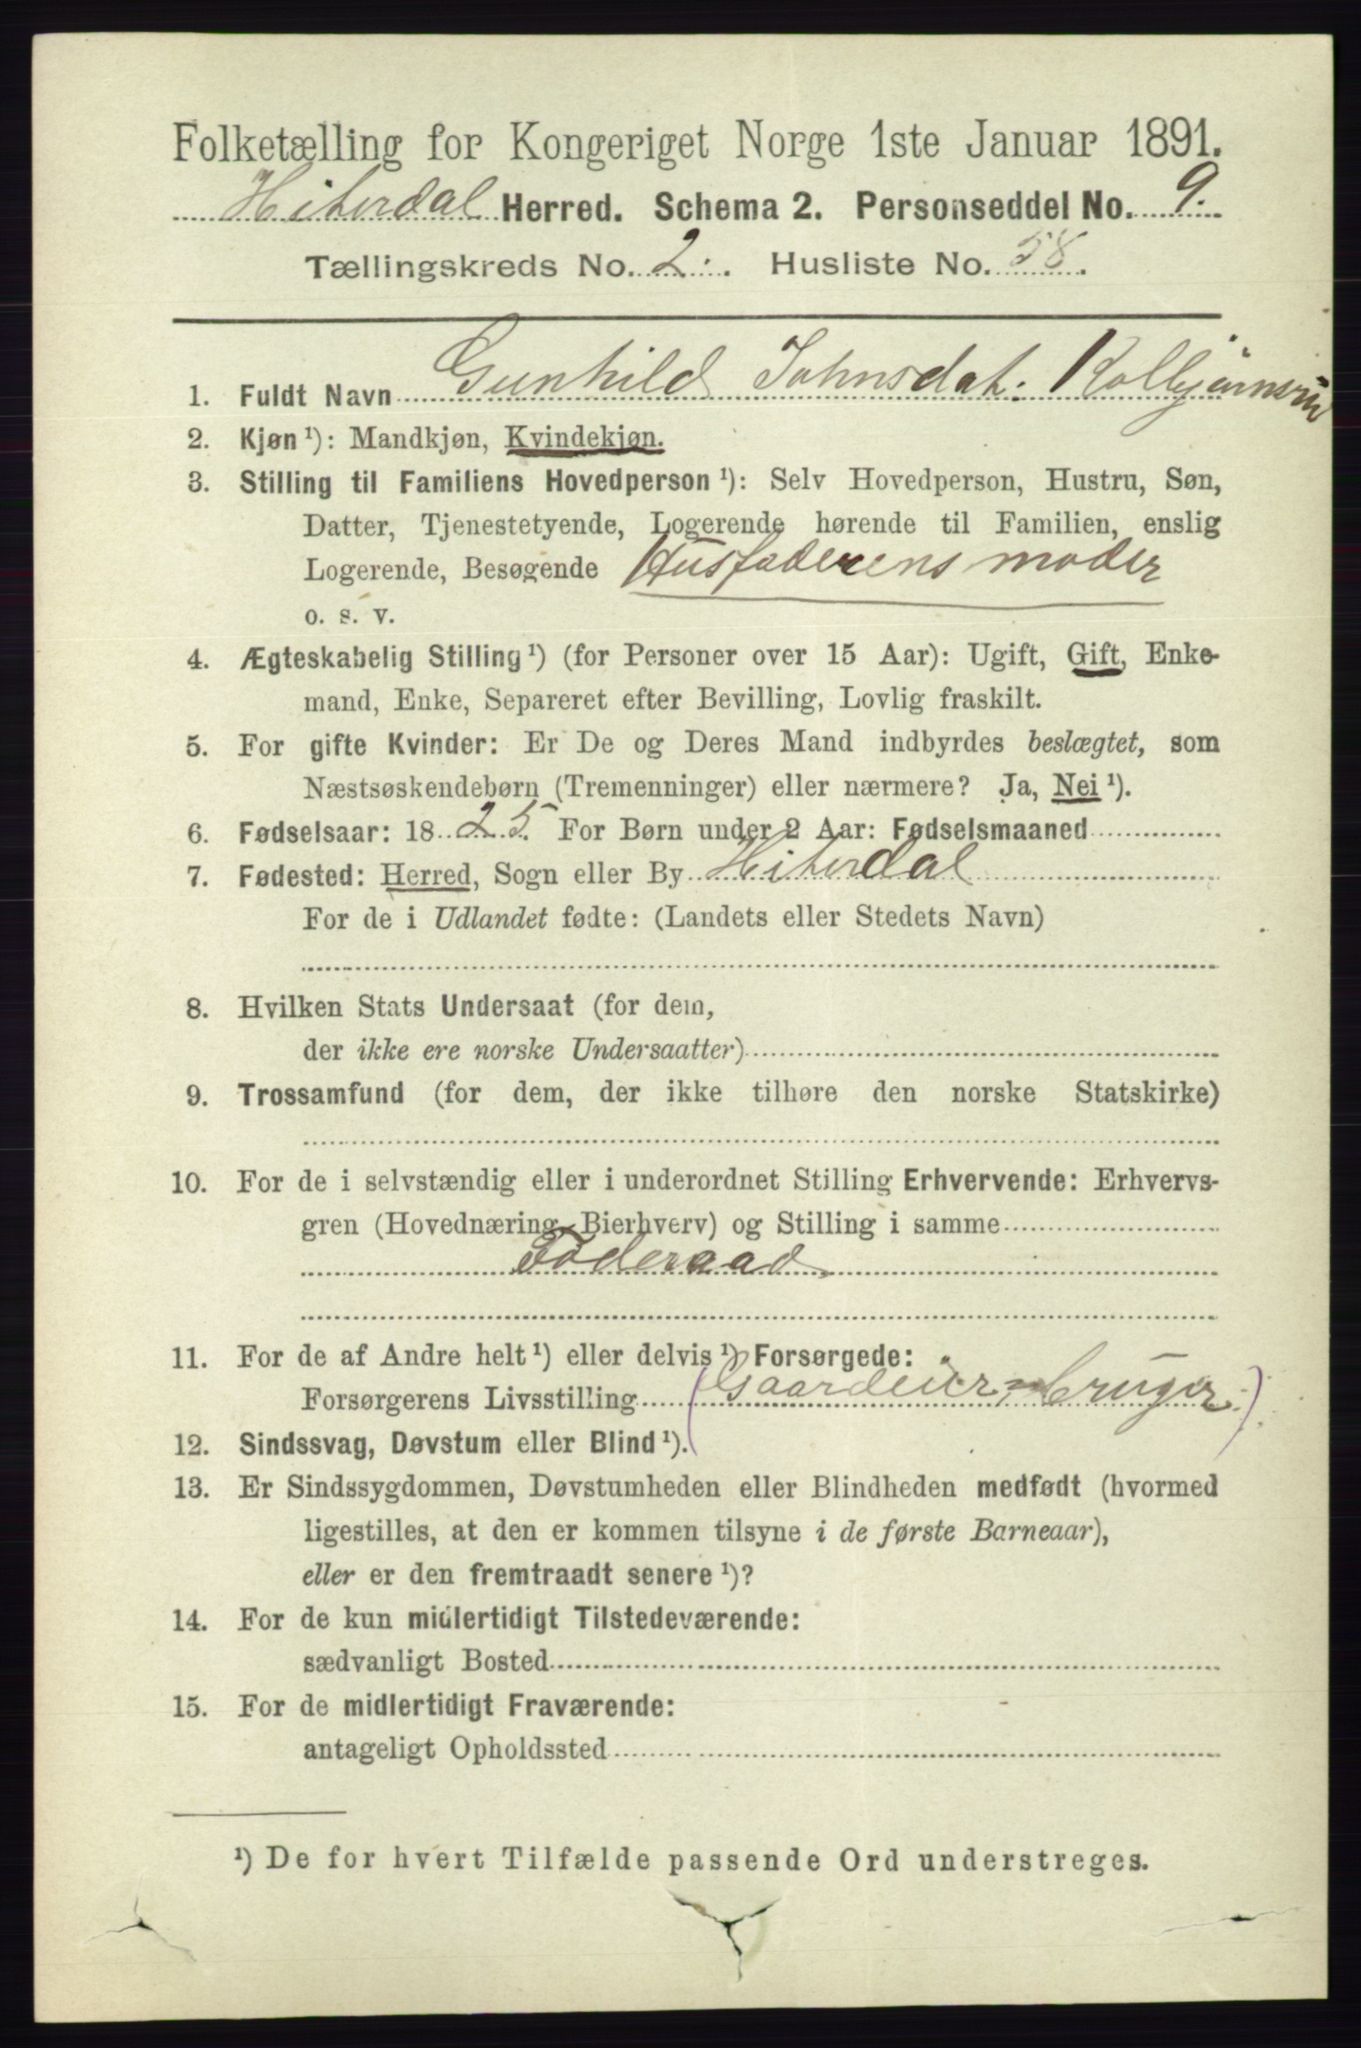 Folketælling for Kongeriget Norge 1ste Januar 1891.
Hiterdal Herred. Schema 2. Personseddel No. 9.
Tællingskreds No. 2. Husliste No. 58.
1. Fuldt Navn Gunhild Johnsdat. Kolbjørnsrud
2. Kjøn ¹): Mandkjøn, Kvindekjøn.
3. Stilling til Familiens Hovedperson ¹): Selv Hovedperson, Hustru, Søn,
Datter, Tjenestetyende, Logerende hørende til Familien, enslig
Logerende, Besøgende Husfaderens moder
o. s. v.
4. Ægteskabelig Stilling ¹) (for Personer over 15 Aar): Ugift, Gift, Enke-
mand, Enke, Separeret efter Bevilling, Lovlig fraskilt.
5. For gifte Kvinder: Er De og Deres Mand indbyrdes beslægtet, som
Næstsøskendebørn (Tremenninger) eller nærmere? Ja, Nei ¹).
6. Fødselsaar: 1825. For Børn under 2 Aar: Fødselsmaaned
7. Fødested: Herred, Sogn eller By Hiterdal
For de i Udlandet fødte: (Landets eller Stedets Navn)
8. Hvilken Stats Undersaat (for dem,
der ikke ere norske Undersaatter)
9. Trossamfund (for dem, der ikke tilhøre den norske Statskirke)
10. For de i selvstændig eller i underordnet Stilling Erhvervende: Erhvervs-
gren (Hovednæring, Bierhverv) og Stilling i samme
Föderaad
11. For de af Andre helt ¹) eller delvis ¹) Forsørgede:
Forsørgerens Livsstilling (Gaardeier, bruger)
12. Sindssvag, Døvstum eller Blind ¹).
13. Er Sindssygdommen, Døvstumheden eller Blindheden medfødt (hvormed
ligestilles, at den er kommen tilsyne i de første Barneaar),
eller er den fremtraadt senere ¹)?
14. For de kun midlertidigt Tilstedeværende:
sædvanligt Bosted
15. For de midlertidigt Fraværende:
antageligt Opholdssted
¹) De for hvert Tilfælde passende Ord understreges.